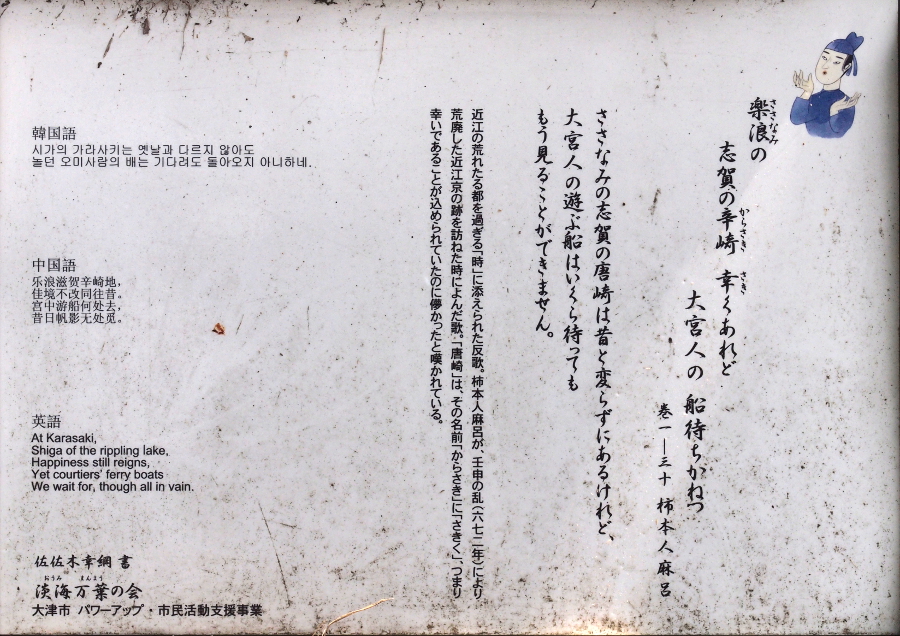 楽浪の
ささなみ
志賀の辛崎 幸くあれど
からさき さき
大宮人の 船待ちかねつ
巻一―三十 柿本人麻呂
ささなみの志賀の唐崎は昔と変らずにあるけれど、
大宮人の遊ぶ船はいくら待っても
もう見ることができません。
近江の荒れたる都を過ぎる「時」に添えられた反歌。柿本人麻呂が、壬申の乱(六七二年)により
荒廃した近江京の跡を訪ねた時によんだ歌。「唐崎」は、その名前「からさき」に「さきく」、つまり
幸いであることが込められていたのに儚かったと嘆かれている。
韓国語
시가의 가라사키는 옛날과 다르지 않아도
놀던 오미사람의 배는 기다려도 돌아오지 아니하네.
中国語
乐浪滋贺辛崎地,
佳境不改同往昔。
宫中游船何处去,
昔日帆影无处觅。
英語
At Karasaki,
Shiga of the rippling lake,
Happiness still reigns,
Yet courtiers' ferry boats
We wait for, though all in vain.
佐佐木幸綱 書
おうみ まんよう
淡海万葉の会
大津市 パワーアップ・市民活動支援事業